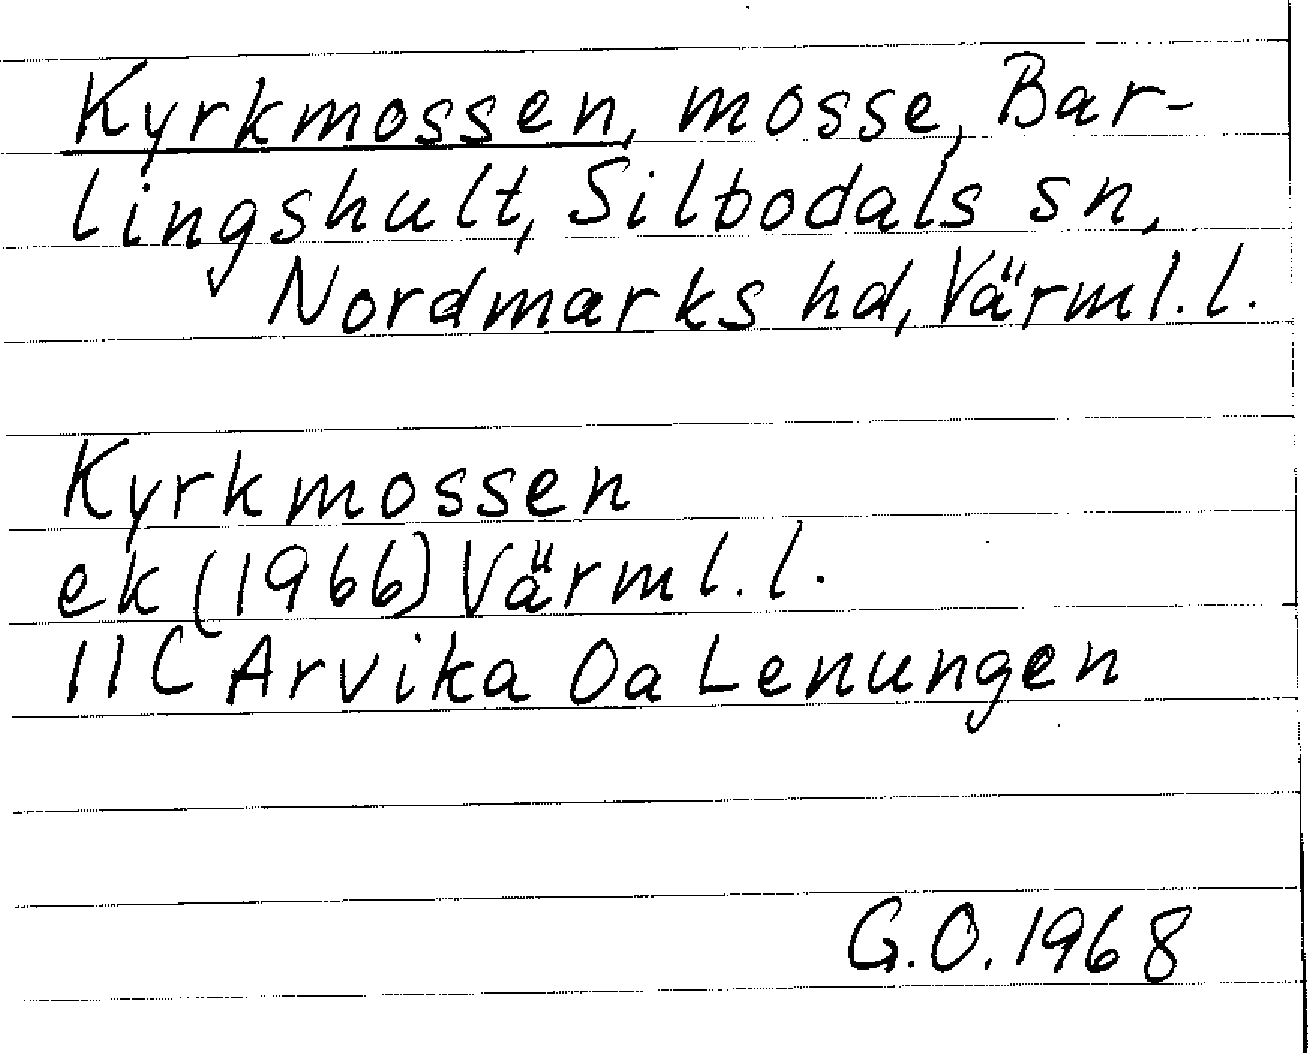 Kyrkmossen, mosse, Bar-
lingshult, Silbodals sn,
Nordmarks hd, Värml. l.
Kyrkmossen
ek (1966) Värml. l.
11C Arvika Oa Lenungen
G.O. 1968